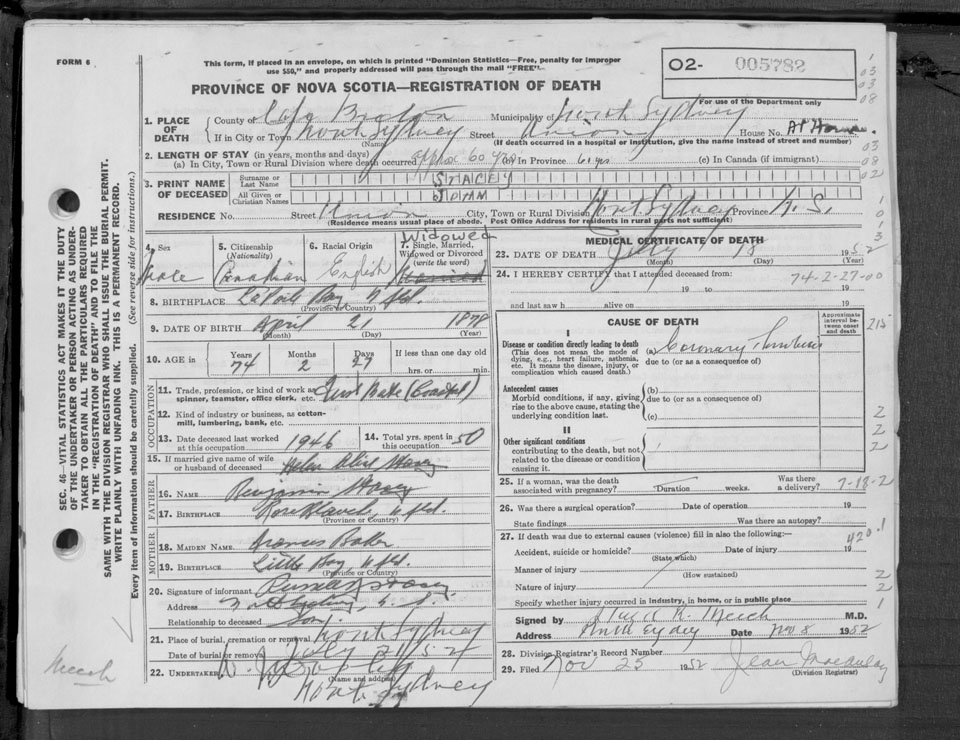 FORM 6
This form, if placed in an envelope, on which is printed "Dominion Statistics—Free, penalty for improper
use $50," and properly addressed will pass through the mail "FREE".
PROVINCE OF NOVA SCOTIA—REGISTRATION OF DEATH
O2- 005782
For use of the Department only
1. PLACE OF DEATH
County of Cape Breton Municipality of North Sydney
If in City or Town North Sydney Street Union House No. At Home.
(Name) (If death occurred in a hospital or institution, give the name instead of street and number)
2. LENGTH OF STAY (in years, months and days)
(a) In City, Town or Rural Division where death occurred approx 60 yrs (b) In Province 61 yrs (c) In Canada (if immigrant)
3. PRINT NAME OF DECEASED
Surname or Last Name STACEY
All Given or Christian Names
RESIDENCE No. Street Union City, Town or Rural Division North Sydney Province N. S.
(Residence means usual place of abode. Post Office Address for residents in rural parts not sufficient)
4. Sex Male
5. Citizenship (Nationality) Canadian
6. Racial Origin English
7. Single, Married, Widowed or Divorced (write the word) Widowed
8. BIRTHPLACE LaPoile Bay Nfld.
(Province or Country)
9. DATE OF BIRTH April 21 1878
(Month) (Day) (Year)
10. AGE in Years 74 Months 2 Days 27 If less than one day old hrs. or min.
OCCUPATION
11. Trade, profession, or kind of work as spinner, teamster, office clerk, etc. First Mate (Coastal)
12. Kind of industry or business, as cotton-mill, lumbering, bank, etc.
13. Date deceased last worked at this occupation 1946
14. Total yrs. spent in this occupation 50
15. If married give name of wife or husband of deceased Helen Stacey
FATHER
16. NAME Benjamin Stacey
17. BIRTHPLACE Nfld.
(Province or Country)
MOTHER
18. MAIDEN NAME Frances Baker
19. BIRTHPLACE Little Bay, Nfld.
(Province or Country)
20. Signature of informant Stacey
Address North Sydney, N. S.
Relationship to deceased Son
21. Place of burial, cremation or removal North Sydney
Date of burial or removal July 21
22. UNDERTAKER
(Name and address)
North Sydney
MEDICAL CERTIFICATE OF DEATH
23. DATE OF DEATH July 18 1952
(Month) (Day) (Year)
24. I HEREBY CERTIFY that I attended deceased from:
74-2-27-00
19 to 19
and last saw h alive on 19
CAUSE OF DEATH
Approximate interval between onset and death
I
Disease or condition directly leading to death
(This does not mean the mode of dying, e.g., heart failure, asthenia, etc. It means the disease, injury, or complication which caused death.)
(a) Coronary
due to (or as a consequence of)
Antecedent causes
Morbid conditions, if any, giving rise to the above cause, stating the underlying condition last.
(b)
due to (or as a consequence of)
(c)
II
Other significant conditions contributing to the death, but not related to the disease or condition causing it.
25. If a woman, was the death associated with pregnancy? Duration weeks. Was there a delivery? 7-18-2
26. Was there a surgical operation? Date of operation 19
State findings Was there an autopsy?
27. If death was due to external causes (violence) fill in also the following:—
Accident, suicide or homicide? Date of injury 19
(State which)
Manner of injury
(How sustained)
Nature of injury
Specify whether injury occurred in industry, in home, or in public place
Signed by R. Meech M.D.
Address North Sydney Date Nov 8 1952
28. Division Registrar's Record Number
29. Filed Nov 25 1952 Jean Macaulay
(Division Registrar)
SEC. 46—VITAL STATISTICS ACT MAKES IT THE DUTY
OF THE UNDERTAKER OR PERSON ACTING AS UNDER-
TAKER TO OBTAIN ALL THE PARTICULARS REQUIRED
IN THE "REGISTRATION OF DEATH" AND TO FILE THE
SAME WITH THE DIVISION REGISTRAR WHO SHALL ISSUE THE BURIAL PERMIT.
WRITE PLAINLY WITH UNFADING INK. THIS IS A PERMANENT RECORD.
Every item of information should be carefully supplied. (See reverse side for instructions.)
Meech
1
03
03
08
03
08
02
215
2
2
2
420
2
2
1